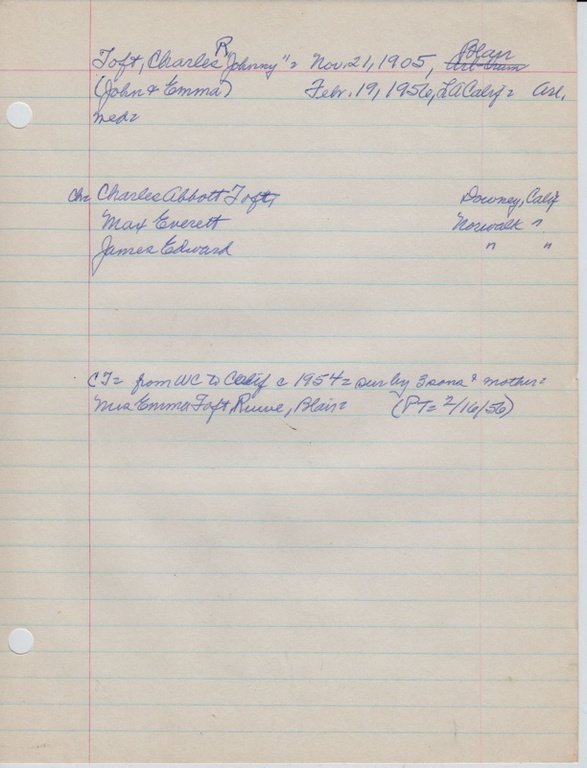 Toft, Charles R "Johnny" = Nov. 21, 1905, Blair
(John & Emma) Febr. 19, 1956, LA Calif =
med=
ch= Charles Abbott Toft, Downey, Calif
Max Everett Norwalk "
James Edward " "
CT= from WC to Calif c 1954 = sur by 3 sons & mother=
Mrs Emma Toft Ruwe, Blair= (PT= 2/16/56)